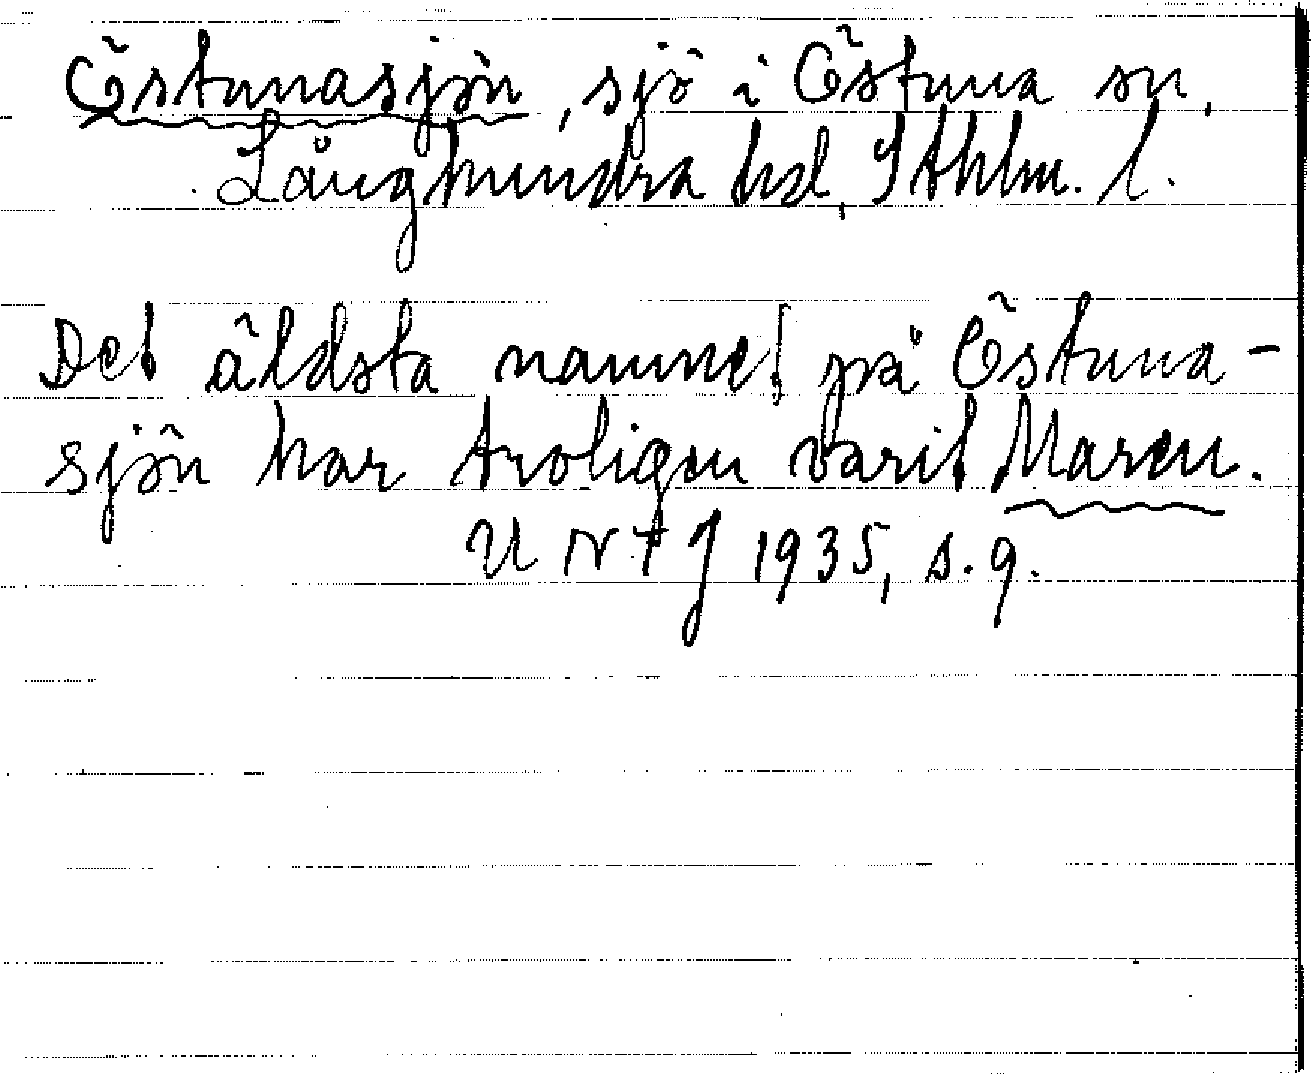 Östunasjön, sjö i Östuna sn,
Långhundra hd, Sthlm. l.
Det äldsta namnet på Östuna-
sjön har troligen varit Maren.
UNTJ 1935, s. 9.